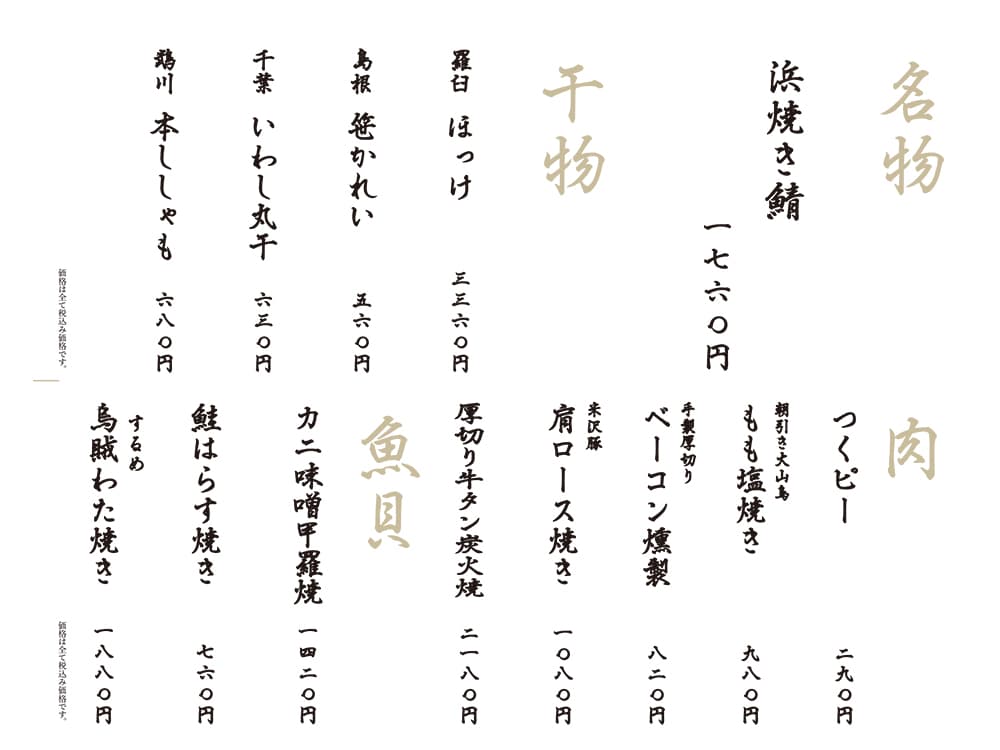 名物
浜焼き鯖
一七六〇円
干物
羅臼
ほっけ
三三六〇円
島根
笹かれい
五六〇円
千葉
いわし丸干
六三〇円
鵡川
本ししゃも
六八〇円
価格は全て税込み価格です。
肉
つくピー
二九〇円
朝引き大山鳥
もも塩焼き
九八〇円
手製厚切り
ベーコン燻製
八二〇円
米沢豚
肩ロース焼き
一〇八〇円
厚切り牛タン炭火焼
二一八〇円
魚貝
カニ味噌甲羅焼
一四二〇円
鮭はらす焼き
七六〇円
するめ
烏賊わた焼き
一八八〇円
価格は全て税込み価格です。